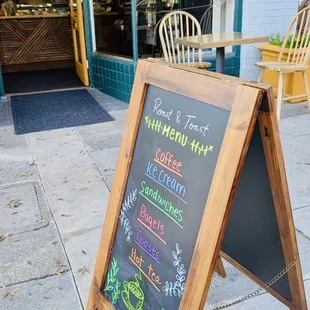 Roast & Toast
MENU
Coffee
Ice Cream
Sandwiches
Bagels
Toasts
Hot Tea